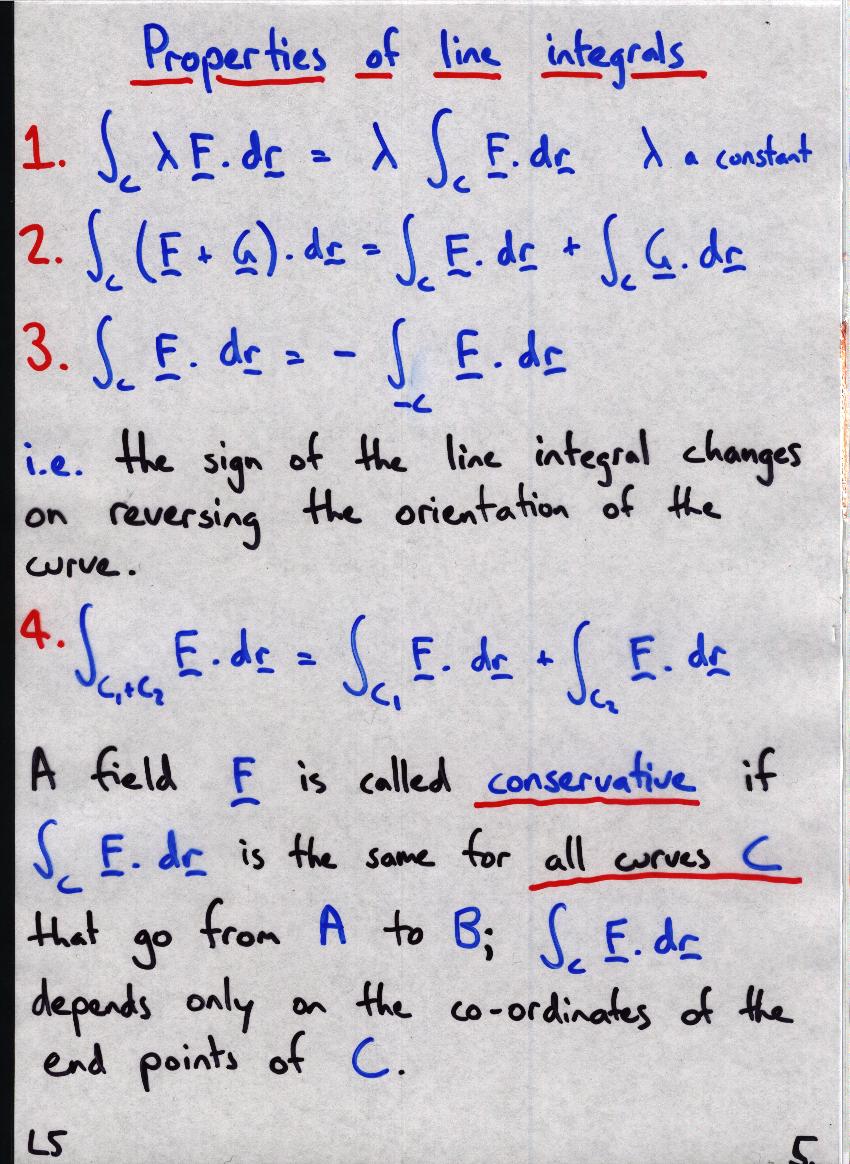 Properties of line integrals
1. ∫_C λ F̲ . dr̲ = λ ∫_C F̲ . dr̲ λ a constant
2. ∫_C (F̲ + G̲) . dr̲ = ∫_C F̲ . dr̲ + ∫_C G̲ . dr̲
3. ∫_C F̲ . dr̲ = - ∫_-C F̲ . dr̲
i.e. the sign of the line integral changes
on reversing the orientation of the
curve.
4. ∫_C₁+C₂ F̲ . dr̲ = ∫_C₁ F̲ . dr̲ + ∫_C₂ F̲ . dr̲
A field F̲ is called conservative if
∫_C F̲ . dr̲ is the same for all curves C
that go from A to B; ∫_C F̲ . dr̲
depends only on the co-ordinates of the
end points of C.
L5 5.